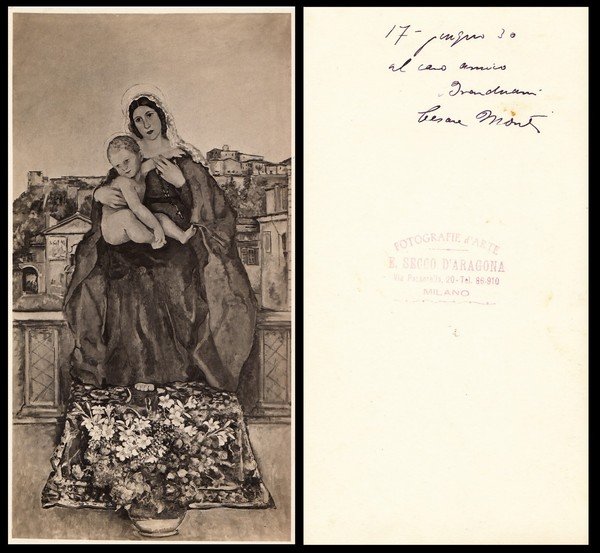 17 - giugno 30
al caro amico
Cesare Monti
FOTOGRAFIE d'ARTE
E. SECCO D'ARAGONA
Via 20 - Tel. 86-910
MILANO